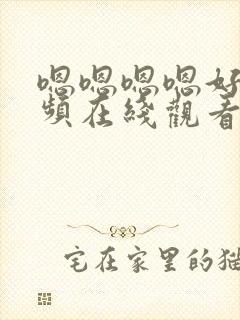 嗯嗯嗯嗯好
頻在綫觀看
宅在家里的猫